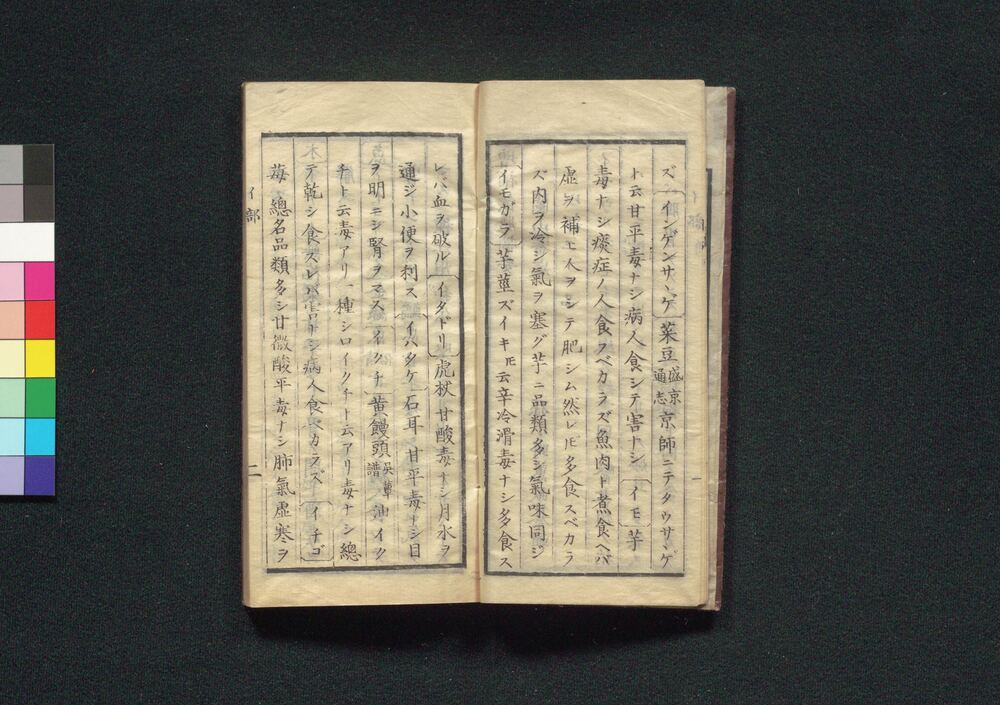 ズ インゲンサヽゲ 菜豆 盛京通志 京師ニテタウサヽゲ
ト云甘平毒ナシ病人食シテ害ナシ イモ 芋
毒ナシ痰症ノ人食フベカラズ魚肉ト煮食ヘバ
虚ヲ補ヒ人ヲシテ肥シム然レ𪜈多食スベカラ
ズ内ヲ冷シ氣ヲ塞グ芋ニ品類多シ氣味同ジ
イモガラ 芋莖ズイキ𪜈云辛冷滑毒ナシ多食ス
レバ血ヲ破ル イタドリ 虎杖 甘酸毒ナシ月水ヲ
通ジ小便ヲ利ス イハタケ 石耳 甘平毒ナシ目
ヲ明ニシ腎ヲマス イクチ 黄饅頭 吳蕈譜 油イク
チト云毒アリ一種シロイクチト云アリ毒ナシ總
テ乾シ食スレバ害ナシ病人食ベカラズ イチゴ
苺 總名品類多シ甘微酸平毒ナシ肺氣虚寒ヲ
イ部
二